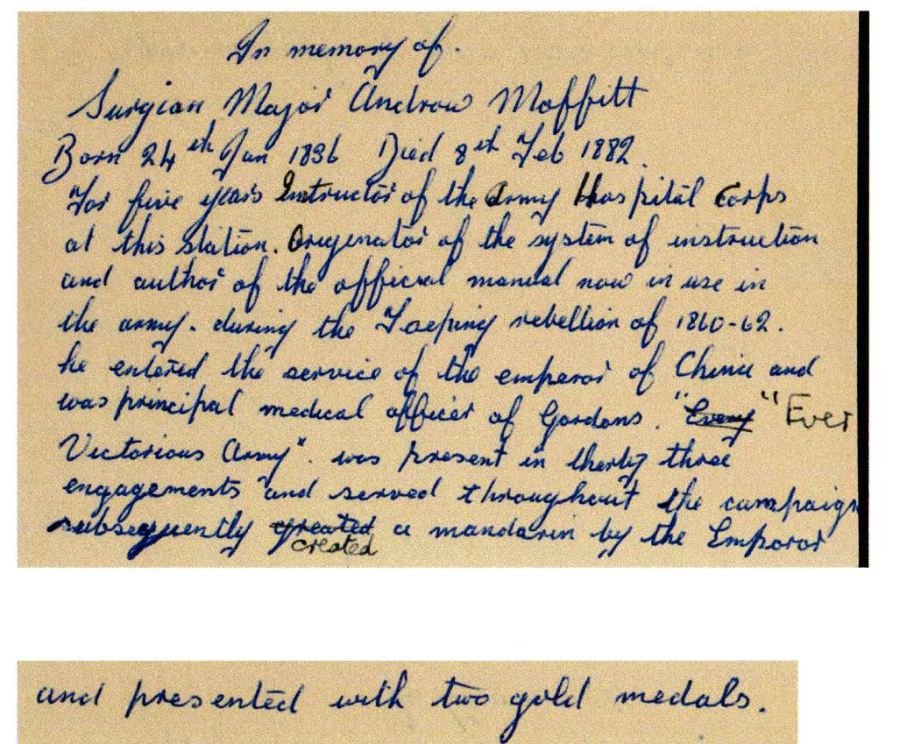 In memory of.
Surgian Major Andrew Moffitt
Born 24th Jan 1836 Died 8th Feb 1882.
For five years Instructor of the Army Hospital Corps
at this station. Originator of the system of instruction
and author of the official manual now in use in
the army. during the Taeping rebellion of 1860-62.
he entered the service of the emperor of China and
was principal medical officer of Gordons. "Every" "Ever
Victorious Army". was present in therty three
engagements and served throughout the campaign
subsequently created a mandarin by the Emperor
created
and presented with two gold medals.